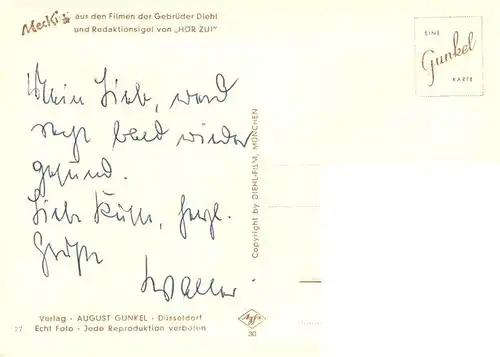 Mecki aus den Filmen der Gebrüder Diehl
und Redaktionsigel von „HÖR ZU!"
EINE
Gunkel
KARTE
Mein Lieb, werd
recht bald wieder
gesund.
Liebe Küsse, herzl.
Grüße
Copyright by DIEHL-FILM, MÜNCHEN
Verlag · AUGUST GUNKEL · Düsseldorf
27 Echt Foto · Jede Reproduktion verboten
Agfa
30